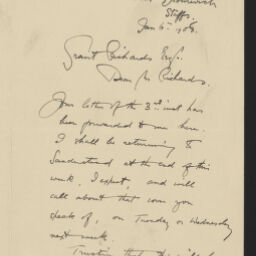 Bromwich
Staffs.
Jan 6th 1908.
Grant Richards Esq.
Dear Mr Richards,
Your letter of the 3rd inst has
been forwarded to me here.
I shall be returning to
at the end of this
week, I expect, and will
call about that
speak of, on Tuesday or Wednesday
next week.
Trusting that